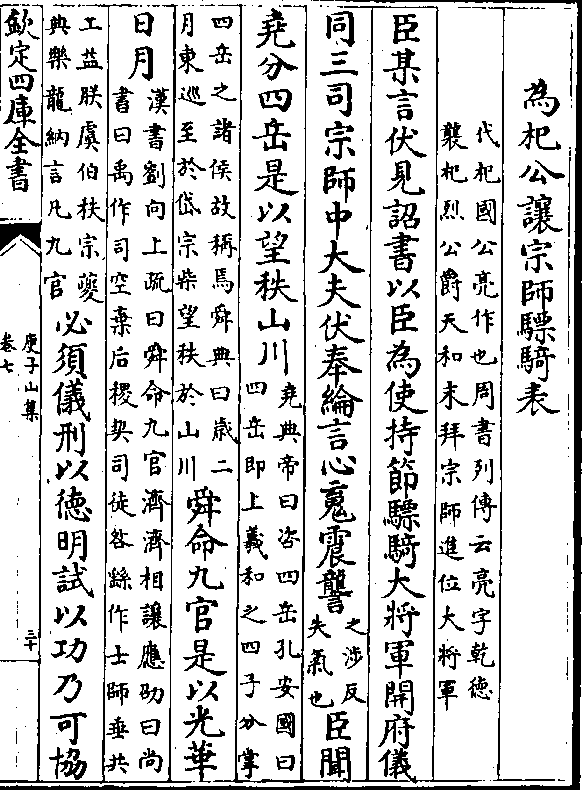 為杞公讓宗師驃騎表
代杞國公亮作也周書列傳云亮字乾德
襲杞烈公爵天和末拜宗師進位大將軍
臣某言伏見詔書以臣為使持節驃騎大將軍開府儀
同三司宗師中大夫伏奉綸言心䰟震讋
之涉反
失氣也
臣聞
堯分四岳是以望秩山川
堯典帝曰咨四岳孔安國曰
四岳即上羲和之四子分掌
四岳之諸侯故稱焉舜典曰歳二
月東巡至於岱宗柴望秩於山川
舜命九官是以光華
日月
漢書劉向上疏曰舜命九官濟濟相讓應劭曰尚
書曰禹作司空棄后稷契司徒咎繇作士師垂共
工益朕虞伯秩宗夔
典樂龍納言凡九官
必須儀刑以德明試以功乃可協
欽定四庫全書
庾子山集
卷七
三十